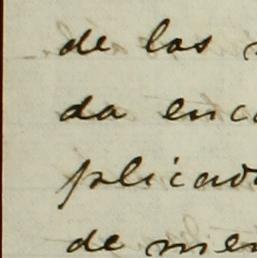 de los
da enc
plicad
de men